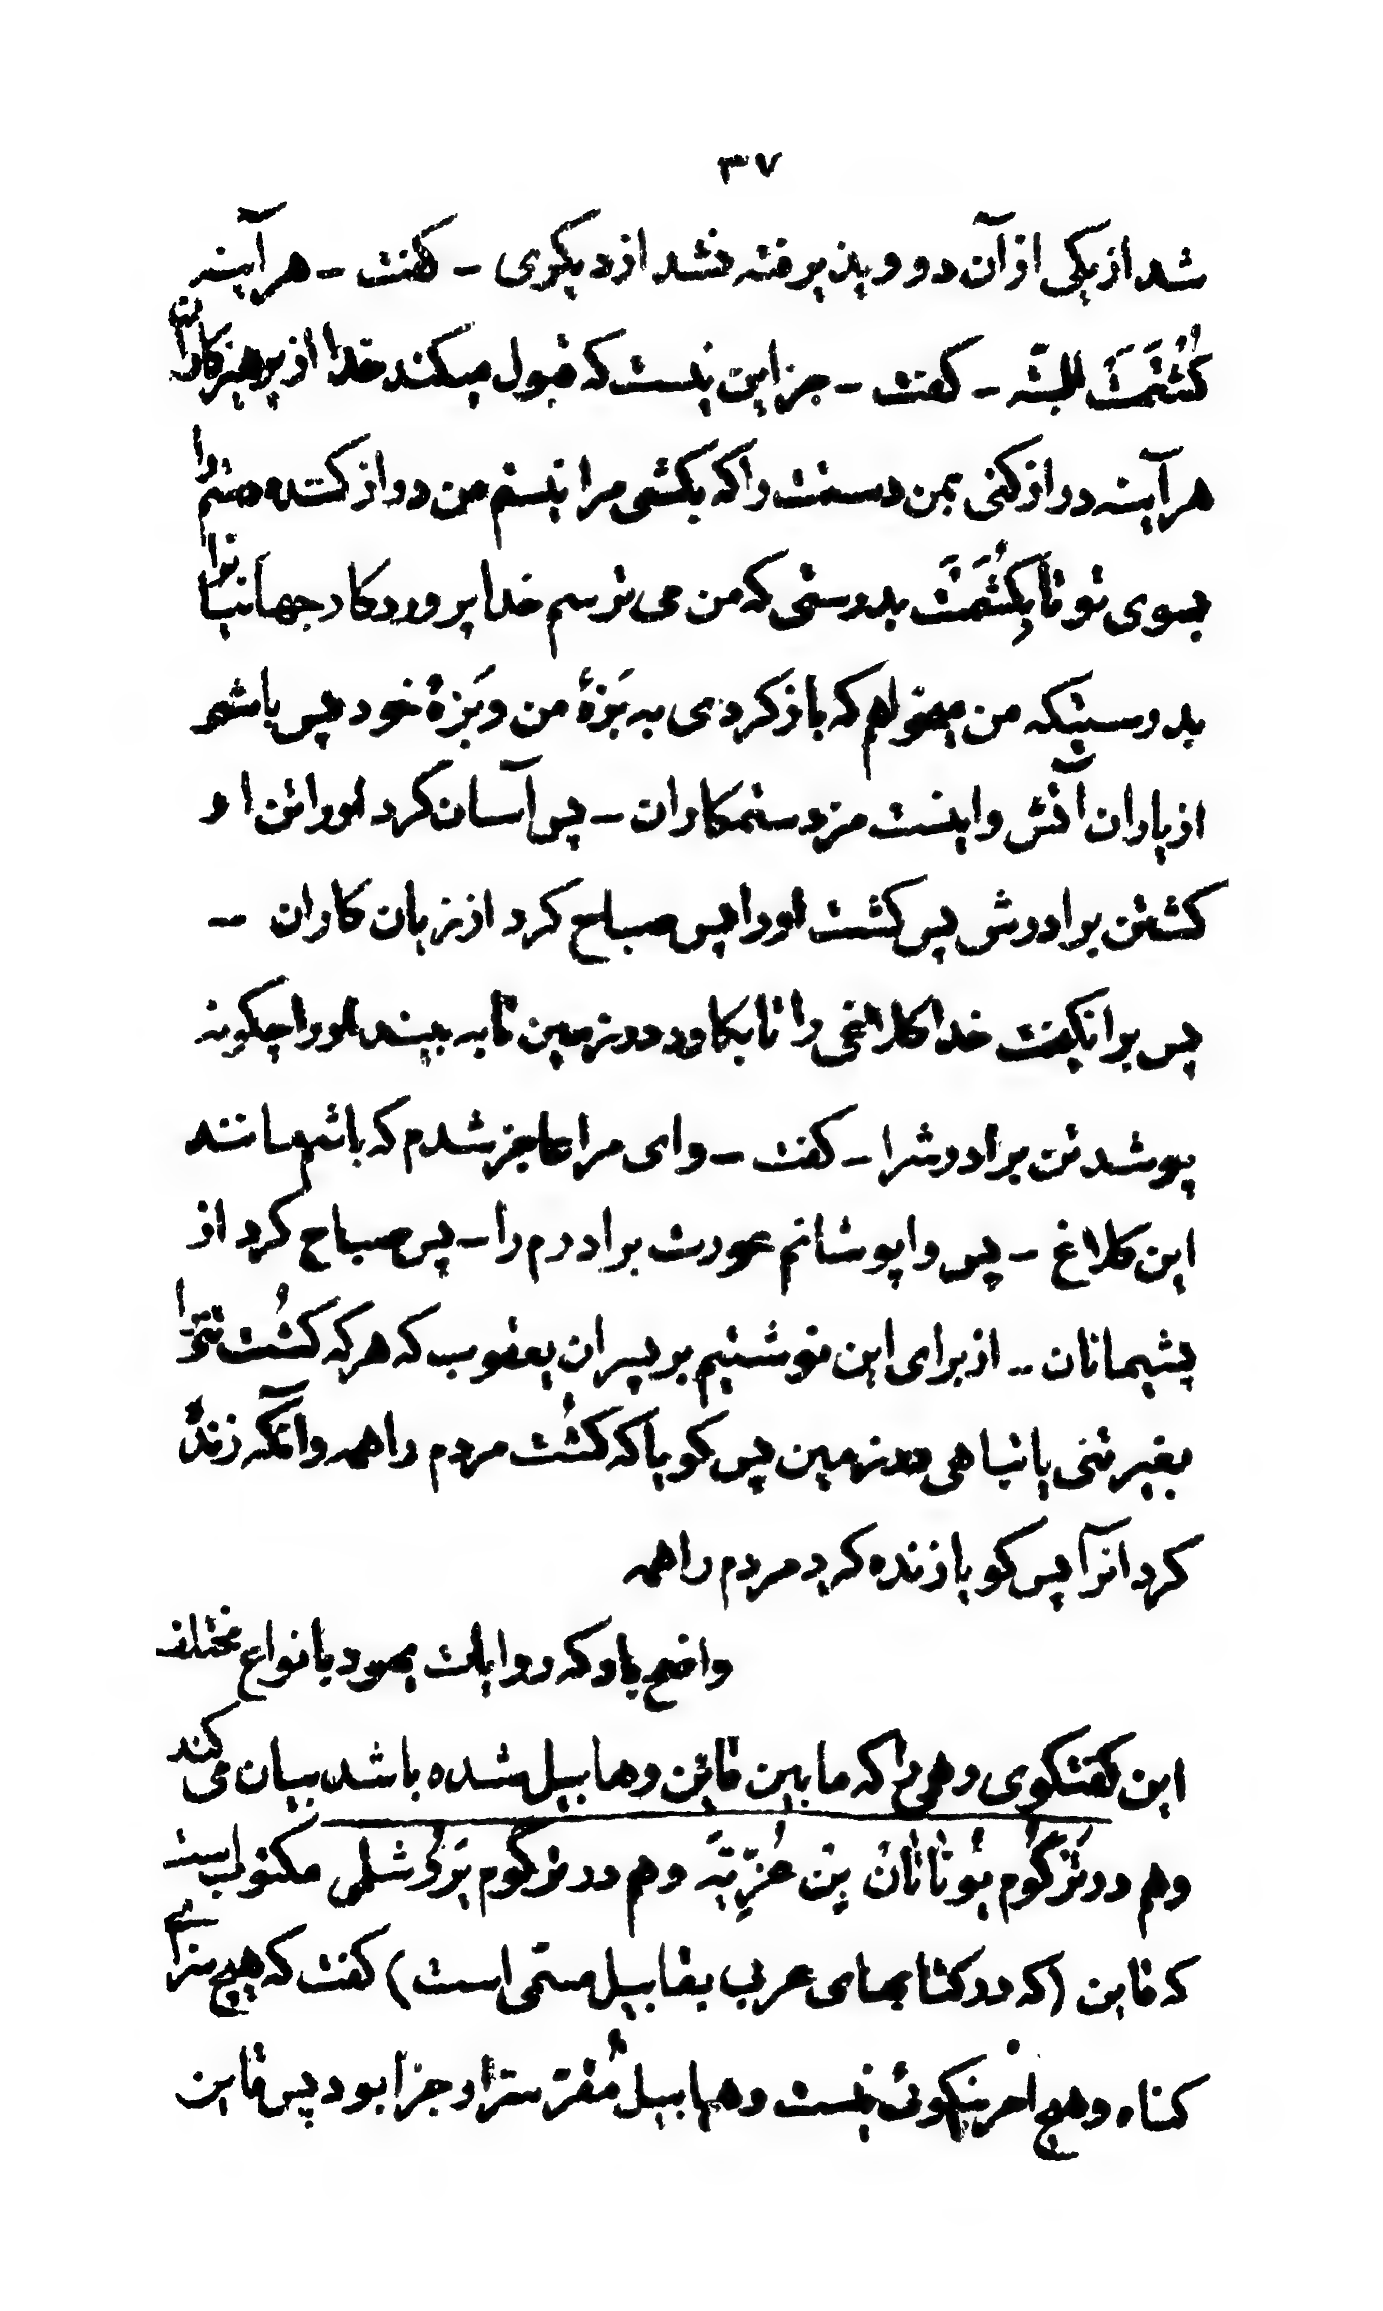 ۳۷
شد از یکی از آن دو و پذیرفته نشد از دیگری - گفت - هر آینه
کُشَمَتَ البتّه - گفت - جز این نیست که قبول میکند خدا از پرهیزکاران
هر آینه دراز کنی بمن دستت را که بکشی مرا نیستم من دراز کننده دستم را
بسوی تو تا بِکُشَمَتَ بدرستی که من می ترسم خدا پروردکار جهانیانرا
بدرستیکه من میخواهم که باز کردی به بَزهٔ من و بَزهٔ خود پس باشی
از یاران آتش و اینست مزد ستمکاران - پس آسان کرد او را تن او
کشتن برادرش پس کشت او را پس صباح کرد از زیان کاران -
پس برانکیخت خدا کلاغی را تا بکاود در زمین تا به بیند او را چکونه
پوشد تن برادرش را - کفت - وای مرا عاجز شدم که باشم مانند
این کلاغ - پس واپوشانم عورت برادرم را - پس صباح کرد از
پشیمانان - از برای این نوشتیم بر پسران یعقوب که هر که کُشت تنی را
بغیر تنی یا تباهی در زمین پس کویا که کُشت مردم را همه و آنکه زنده
کرد آنرا پس کویا زنده کرد مردم را همه
واضح باد که روایات یهود بانواع مختلف
این کفتکوی وهمی را که ما بین قاین و هابیل شده باشد بیان می کند
و هم در تَرْگوم یوناثان بِن عُزِّیَه و هم در ترگوم یَرُوشلمی مکتوب است
که قاین (که در کتابهای عرب بقابیل مسمّی است) کفت که هیچ سزای
کناه و هیچ اجر نیکوئی نیست و هابیل مُقرّ سزا و جزا بود پس قاین